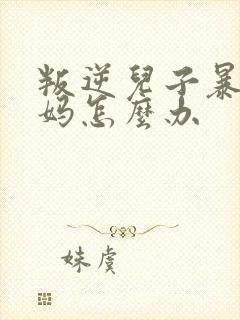 叛逆兒子暴
妈怎麼办
妹虞